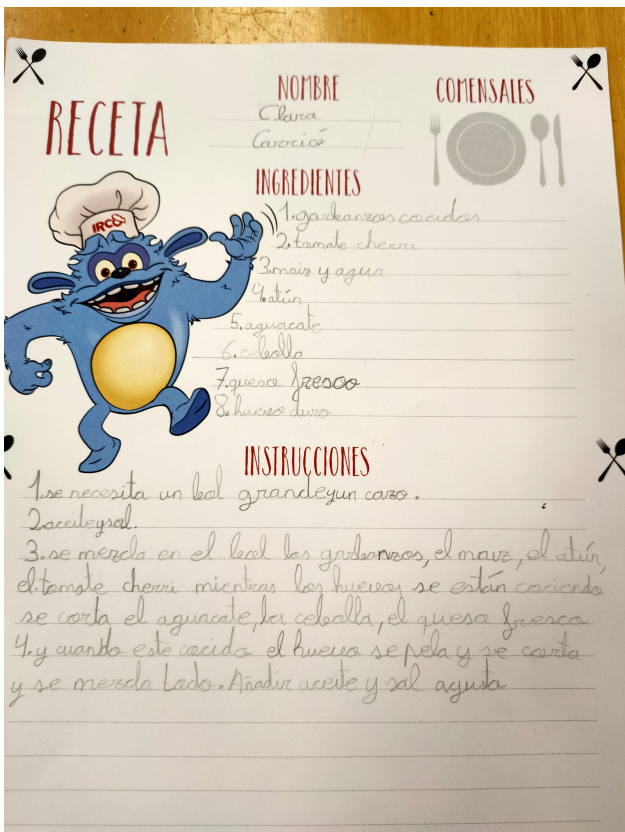 RECETA
NOMBRE
Clara
Carrió
COMENSALES
IRCO
INGREDIENTES
1. garbanzos cocidos
2. tomate cherri
3. maiz y agua
4. atún
5. aguacate
6. cebolla
7. queso fresco
8. huevo duro
INSTRUCCIONES
1. se necesita un bol grande y un cazo.
2. aceite y sal.
3. se mezcla en el bol los garbanzos, el maiz, el atún,
el tomate cherri mientras los huevos se están cociendo
se corta el aguacate, la cebolla, el queso fresco
4. y cuando este cocido el huevo se pela y se corta
y se mezcla todo. Añadir aceite y sal agusto